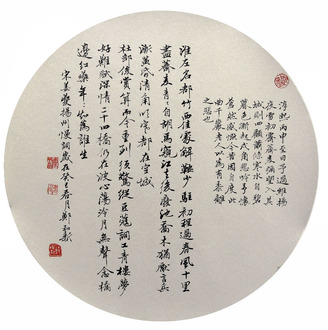 淳熙丙申至日予過維揚
夜雪初霽薺麥彌望入其
城則四顧蕭條寒水自碧
暮色漸起戍角悲吟予懷
愴然感慨今昔因自度此
曲千巖老人以為有黍離
之悲也
淮左名都竹西佳處解鞍少駐初程過春風十里
盡薺麥青青自胡馬窺江去後廢池喬木猶厭言兵
漸黃昏清角吹寒都在空城
杜郎俊賞算而今重到須驚縱豆蔻詞工青樓夢
好難賦深情二十四橋仍在波心蕩冷月無聲念橋
邊紅藥年々知為誰生
宋姜夔揚州慢詞歲在癸巳春月鄭